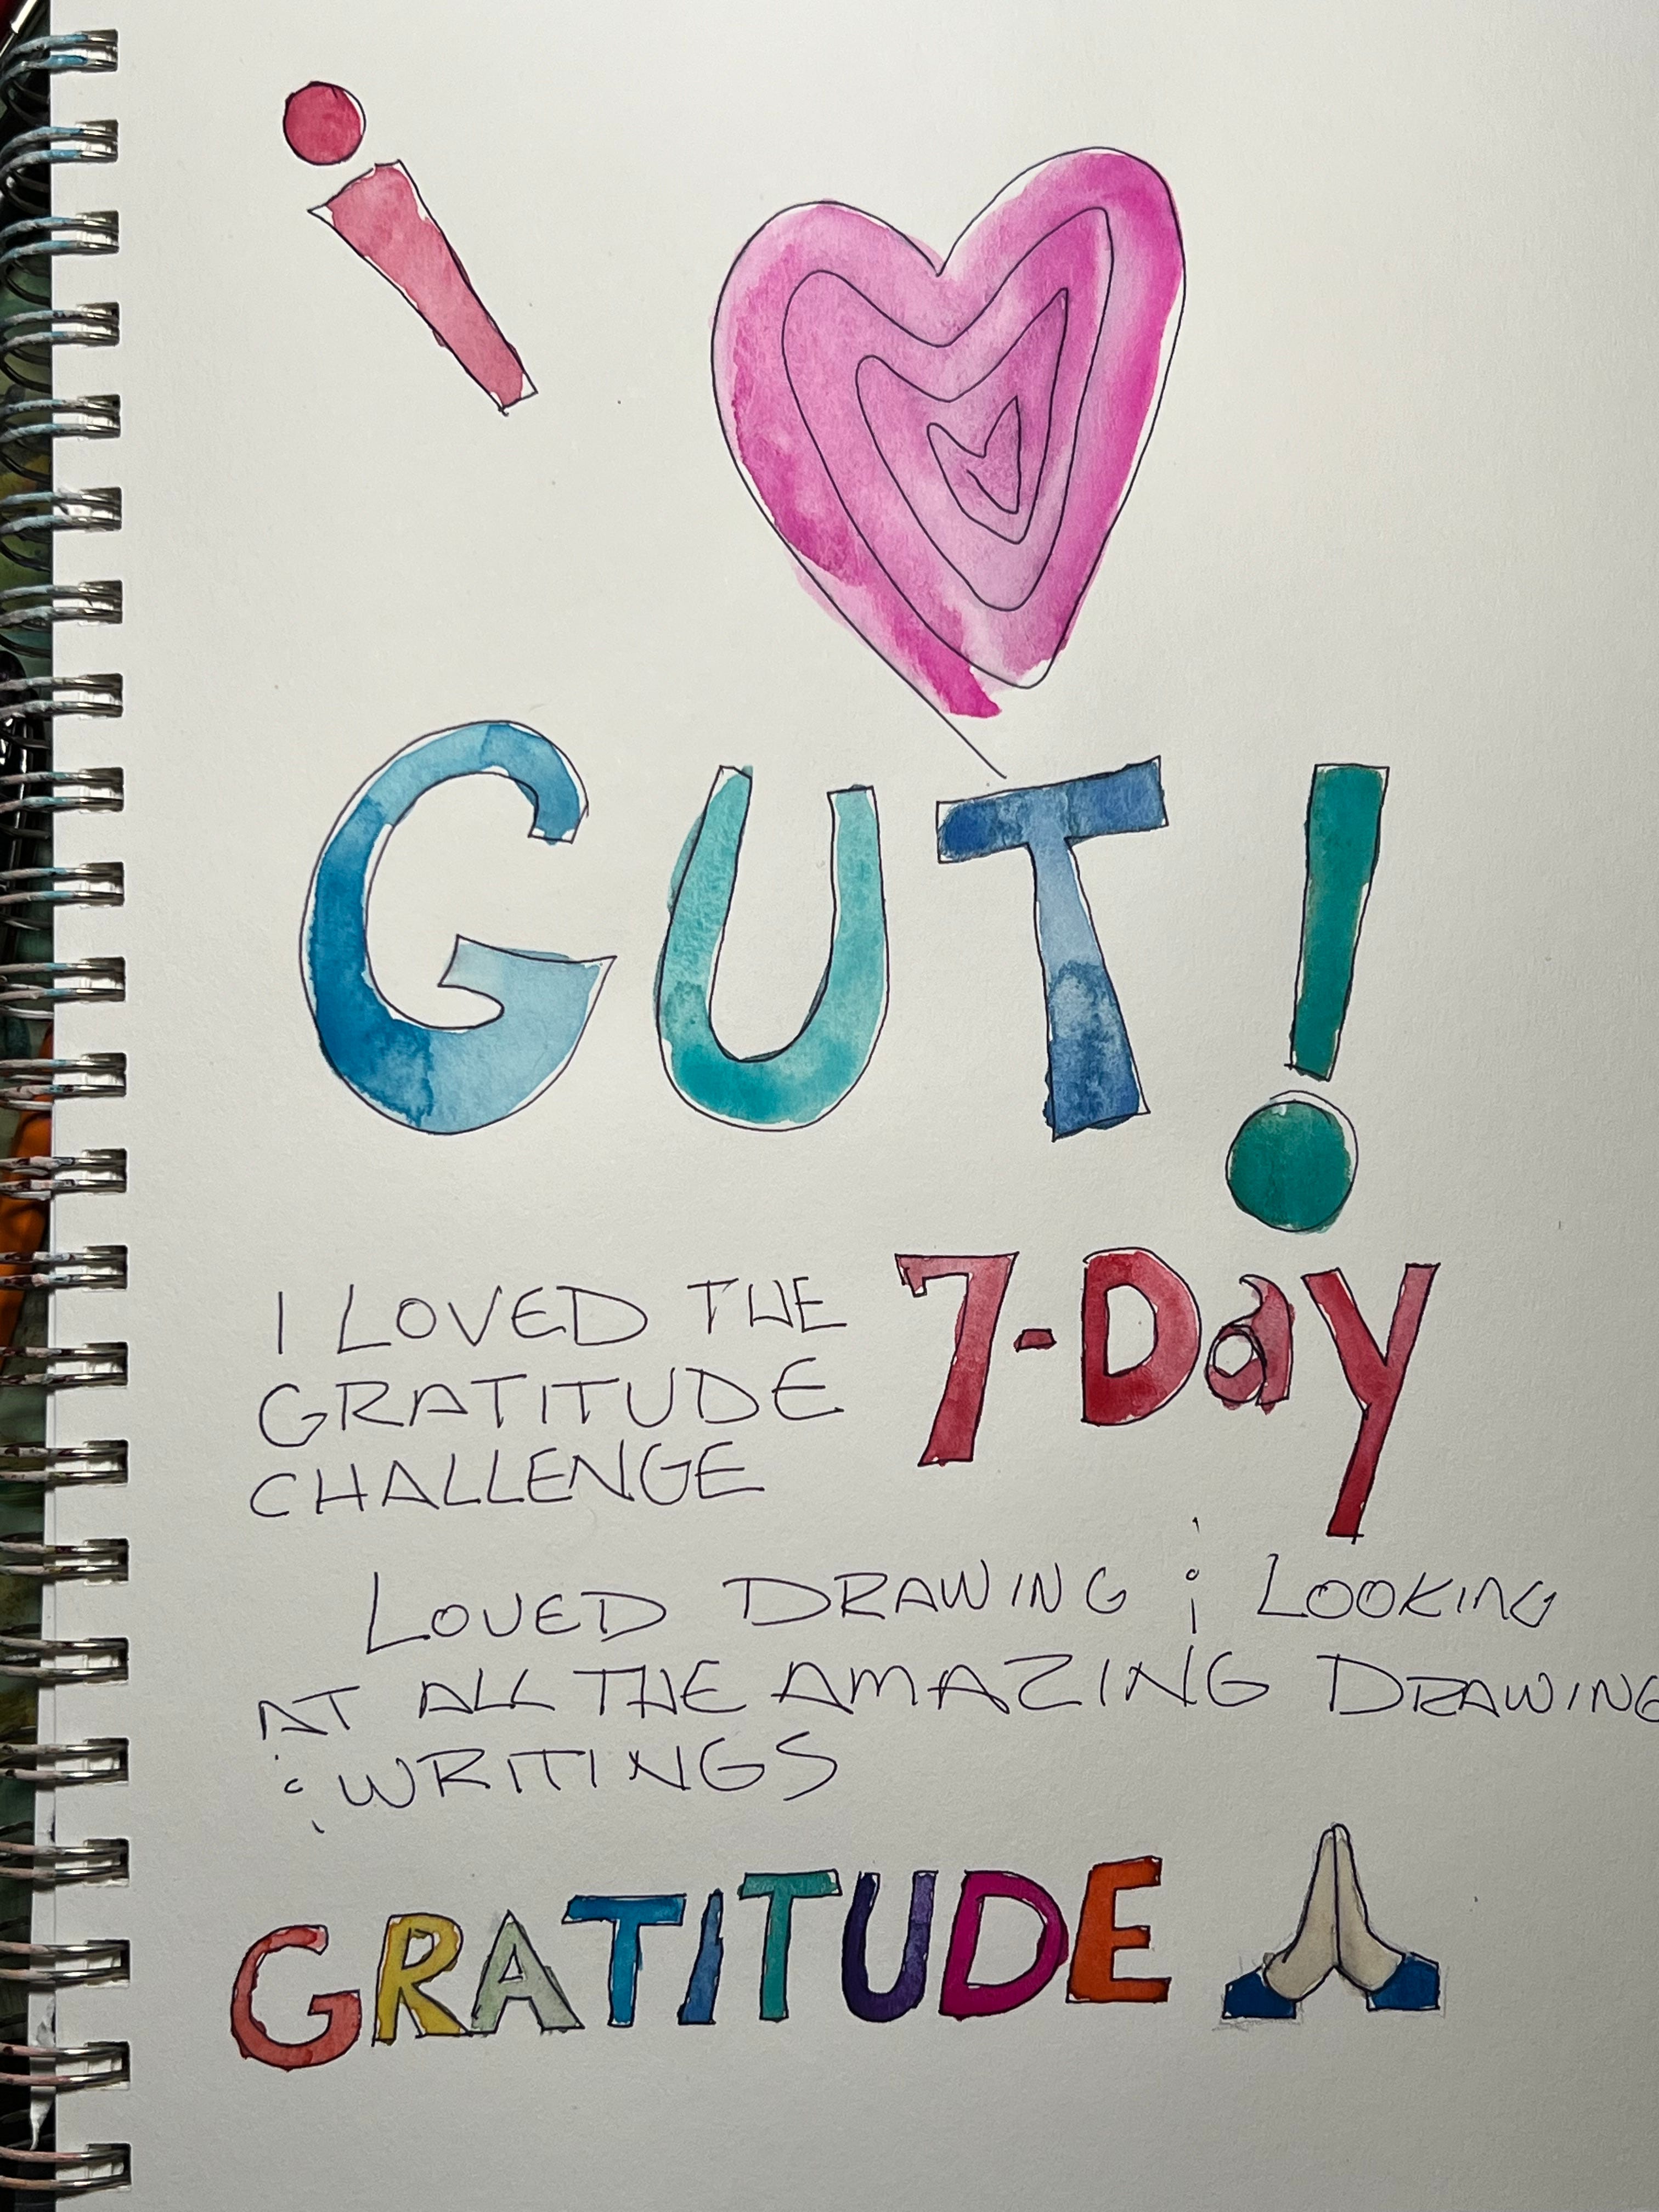 i ♥
GUT!
I LOVED THE 7-Day
GRATITUDE
CHALLENGE
LOVED DRAWING & LOOKING
AT ALL THE AMAZING DRAWING
& WRITINGS
GRATITUDE 🙏